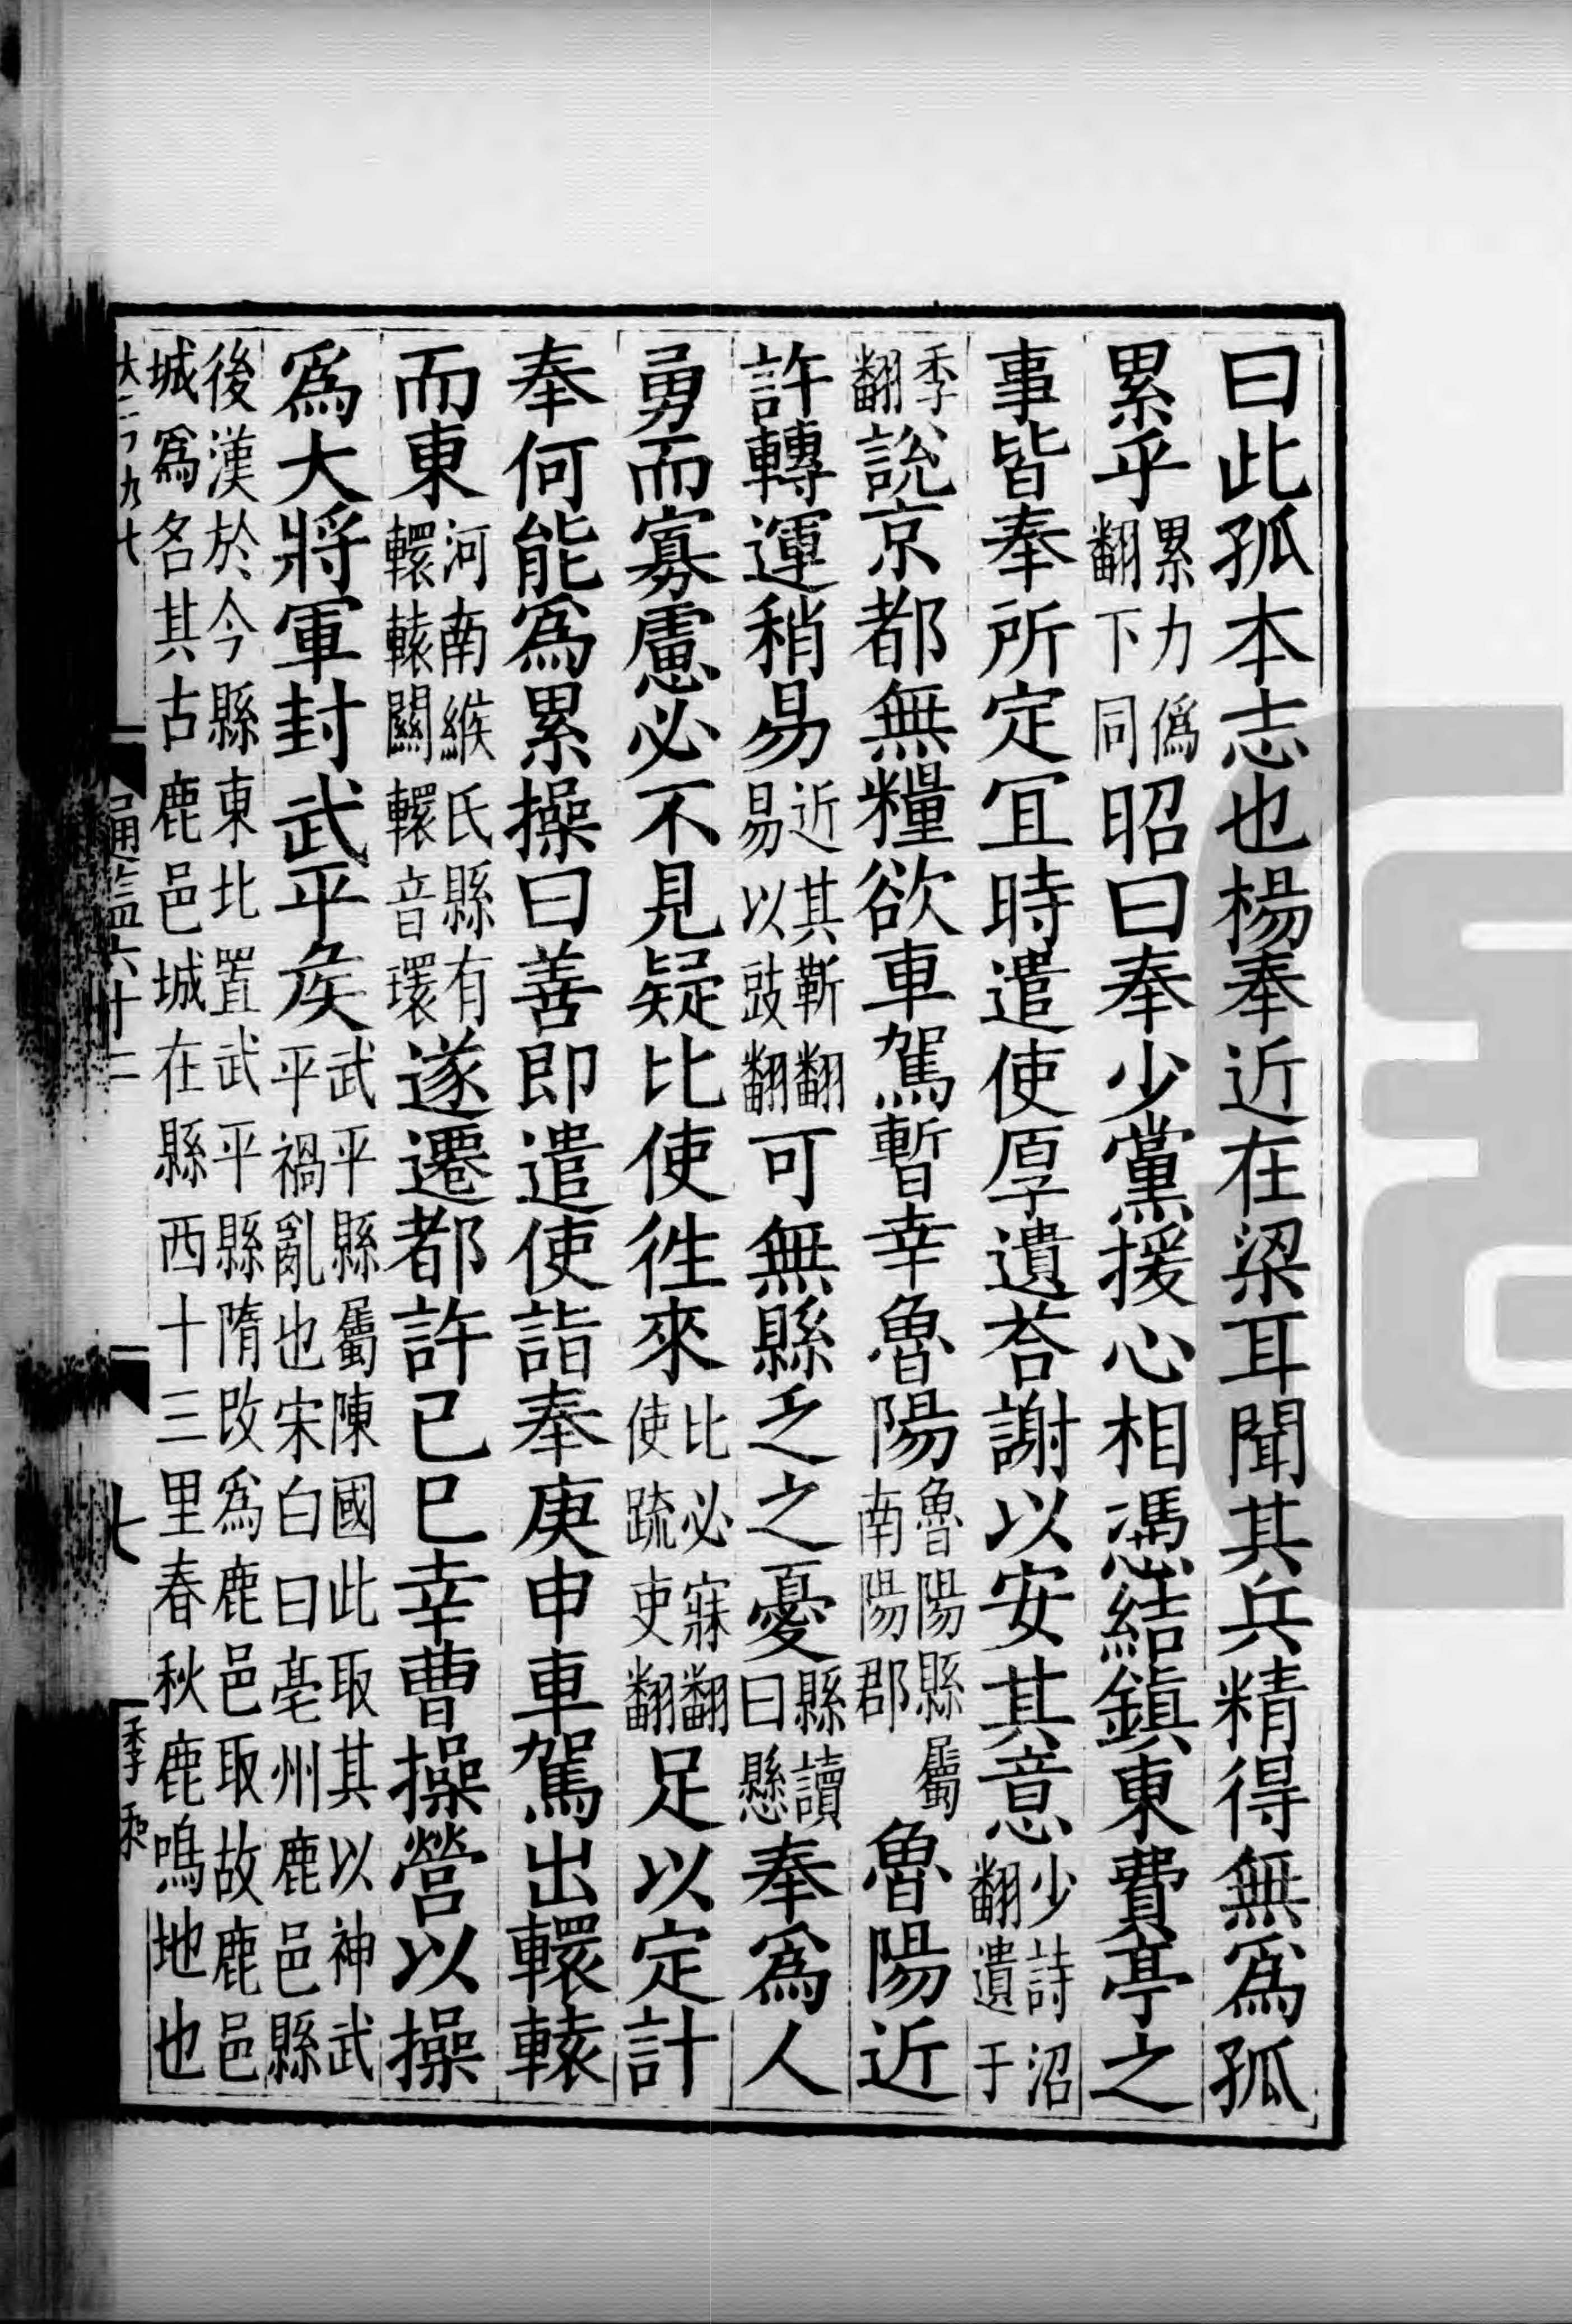 曰此孤本志也楊奉近在梁耳聞其兵精得無為孤
累乎累力偽翻下同昭曰奉少黨援心相憑結鎮東費亭之
事皆奉所定宜時遣使厚遺荅謝以安其意少詩沼翻遺于
季翻說京都無糧欲車駕暫幸魯陽魯陽縣屬南陽郡魯陽近
許轉運稍易近其靳翻易以豉翻可無縣乏之憂縣讀曰懸奉為人
勇而寡慮必不見疑比使徃來比必寐翻使疏吏翻足以定計
奉何能為累操曰善即遣使詣奉庚申車駕出轘轅
而東河南緱氏縣有轘轅關轘音環遂遷都許己巳幸曹操營以操
為大將軍封武平矦武平縣屬陳國此取其以神武平禍亂也宋白曰亳州鹿邑縣
後漢於今縣東北置武平縣隋改為鹿邑取故鹿邑城為名其古鹿邑城在縣西十三里春秋鹿鳴地也
通鑑六十二
七